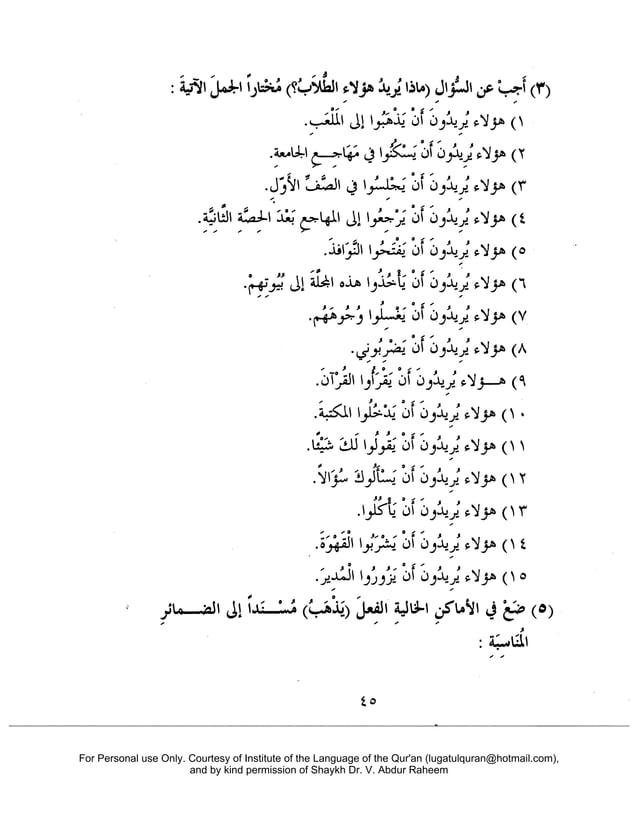 (٣) أَجِبْ عن السُّؤالِ (ماذا يُرِيدُ هؤلاءِ الطُّلَّابُ؟) مُخْتاراً الجملَ الآتيةَ :
١) هؤلاء يُرِيدُونَ أَنْ يَذْهَبُوا إلى المَلْعَبِ.
٢) هؤلاء يُرِيدُونَ أَنْ يَسْكُنُوا في مَهَاجِـعِ الجامعةِ.
٣) هؤلاء يُرِيدُونَ أَنْ يَجْلِسُوا في الصَّفِّ الأَوَّلِ.
٤) هؤلاء يُرِيدُونَ أَنْ يَرْجِعُوا إلى المهاجعِ بَعْدَ الحِصَّةِ الثَّانِيَّةِ.
٥) هؤلاء يُرِيدُونَ أَنْ يَفْتَحُوا النَّوَافِذَ.
٦) هؤلاء يُرِيدُونَ أَنْ يَأْخُذُوا هذه المجلَّةَ إلى بُيُوتِهِمْ.
٧) هؤلاء يُرِيدُونَ أَنْ يَغْسِلُوا وُجُوهَهُم.
٨) هؤلاء يُرِيدُونَ أَنْ يَضْرِبُونِي.
٩) هـــؤلاء يُرِيدُونَ أَنْ يَقْرَأُوا القُرْآنَ.
١٠) هؤلاء يُرِيدُونَ أَنْ يَدْخُلُوا المكتبةَ.
١١) هؤلاء يُرِيدُونَ أَنْ يَقُولُوا لَكَ شَيْئًا.
١٢) هؤلاء يُرِيدُونَ أَنْ يَسْأَلُوكَ سُؤَالاً.
١٣) هؤلاء يُرِيدُونَ أَنْ يَأْكُلُوا.
١٤) هؤلاء يُرِيدُونَ أَنْ يَشْرَبُوا الْقَهْوَةَ.
١٥) هؤلاء يُرِيدُونَ أَنْ يَزُورُوا الْمُدِيرَ.
(٥) ضَعْ في الأماكنِ الخاليةِ الفِعلَ (يَذْهَبُ) مُسْـــنَداً إلى الضـــمائرِ
المُنَاسِبَةِ :
٤٥
For Personal use Only. Courtesy of Institute of the Language of the Qur'an (lugatulquran@hotmail.com),
and by kind permission of Shaykh Dr. V. Abdur Raheem